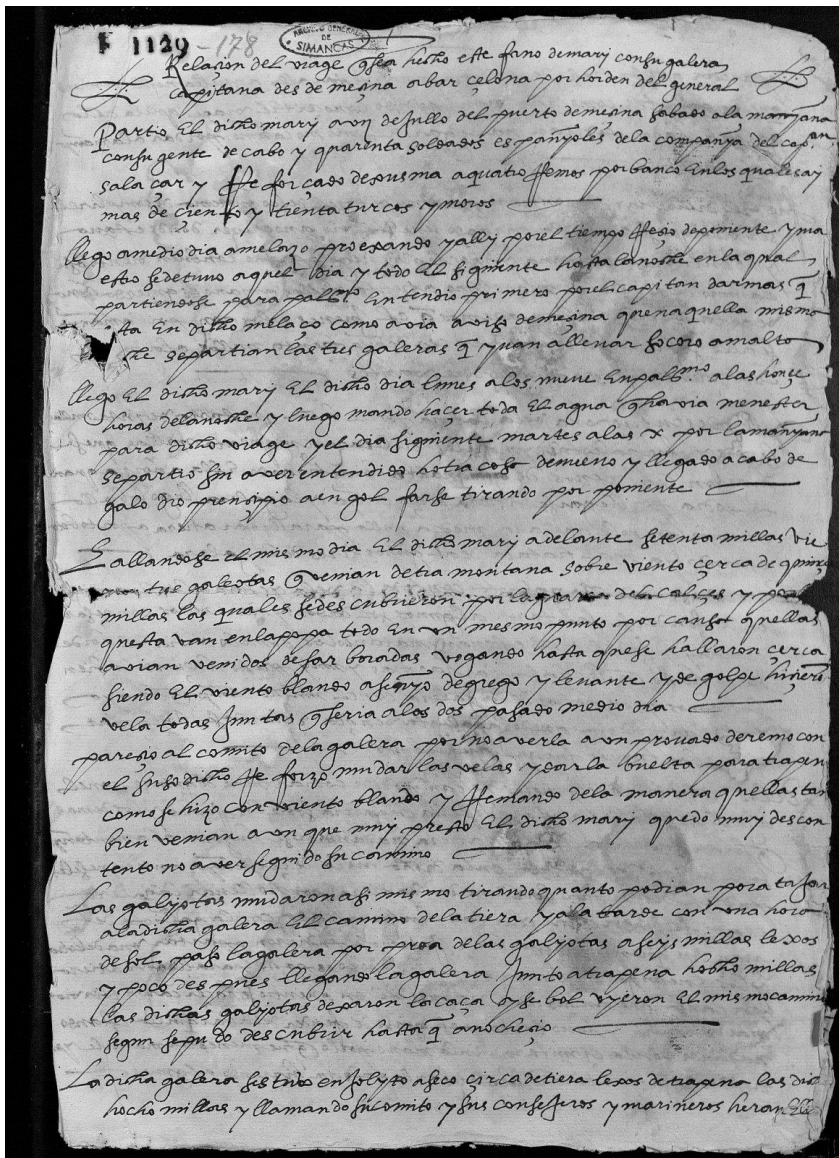 E 1129 - 178
ARCHIVO GENERAL DE SIMANCAS
Relaçion del viage q̃ sea hecho estefano de mari con su galera
capitana desde meçina a barçelona por horden del general
Partio El dicho mari a un de Jullo del puerto de meçina sabado a la mañana
con su gente de cabo y quarenta soldados españoles de la companya del cap.an
salaçar y Reforçado de xusma a quatro Remos por banco En los quales ay
mas de çiento y treinta turcos y moros
llego a medio dia a melazo proexando y alli por el tiempo Reçio de ponente y ma
estro se detuvo aquel dia y todo El siguiente hasta la noche en la qual
partiendose para pall.mo Entendio primero por el capitan darmas q̃
sta En dicho melaço como avia avizo de meçina que naquella misma
che se partian las tres galeras q̃ yvan a llevar socoro a malta
llego El dicho mari El dicho dia lunes a los nueve En pall.mo a las honze
horas de la noche y luego mando haçer toda El agua q̃ havia menester
para dicho viage y el dia siguiente martes a las x por la mañana
se partio sin aver entendido hotra cosa de nuevo y llegado a cabo de
galo dio prençipio a engolfarse tirando por ponente
Eallandose el mismo dia El dicho mari adelante setenta millas vie
tres galeotas q̃ venian de tramontana sobre viento çerca de quinze
millas las quales se descubrieron por la guardia del calçes y por
questavan en la popa todo En un mesmo punto por causa quellas
avian venido desarboradas vogando hasta que se hallaron çerca
siendo El viento blando a senyo de grego y levante y de golpe hiçieron
vela todas Juntas q̃ seria a los dos pasado medio dia
pareçio al comito de la galera por no averla aun provado de remo con
el suso dicho Reforzo mudar las velas y dar la buelta para trapena
como se hizo con viento blando y Remando de la manera quellas tan
bien venian aun que muy presto El dicho mari quedo muy descon
tento no aver seguido su camino
Las galyotas mudaron asi mismo tirando quanto podian por atajar
a la dicha galera El camino de la tiera y a la tarde con una hora
de sol paso la galera por proa de las galyotas a seys millas lexos
y poco despues llegando la galera Junto a trapena hocho millas
las dichas galyotas dexaron la caça y se bolvyeron El mismo camino
segun se pudo descubrir hasta q̃ anocheçio
La dicha galera se estuvo en Jolyto a seco çirca de tiera lexos de trapena las dic
hocho millas y llamando su comito y sus consejeros y marineros heran